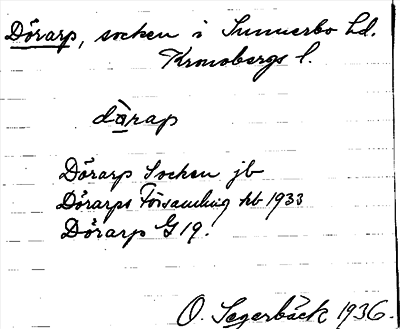 Dörarp, socken i Sunnerbo hd.
Kronobergs l.
dörap
Dörarp Socken jb
Dörarps Församling kb 1933
Dörarp G 19.
O. Segerbäck 1936.